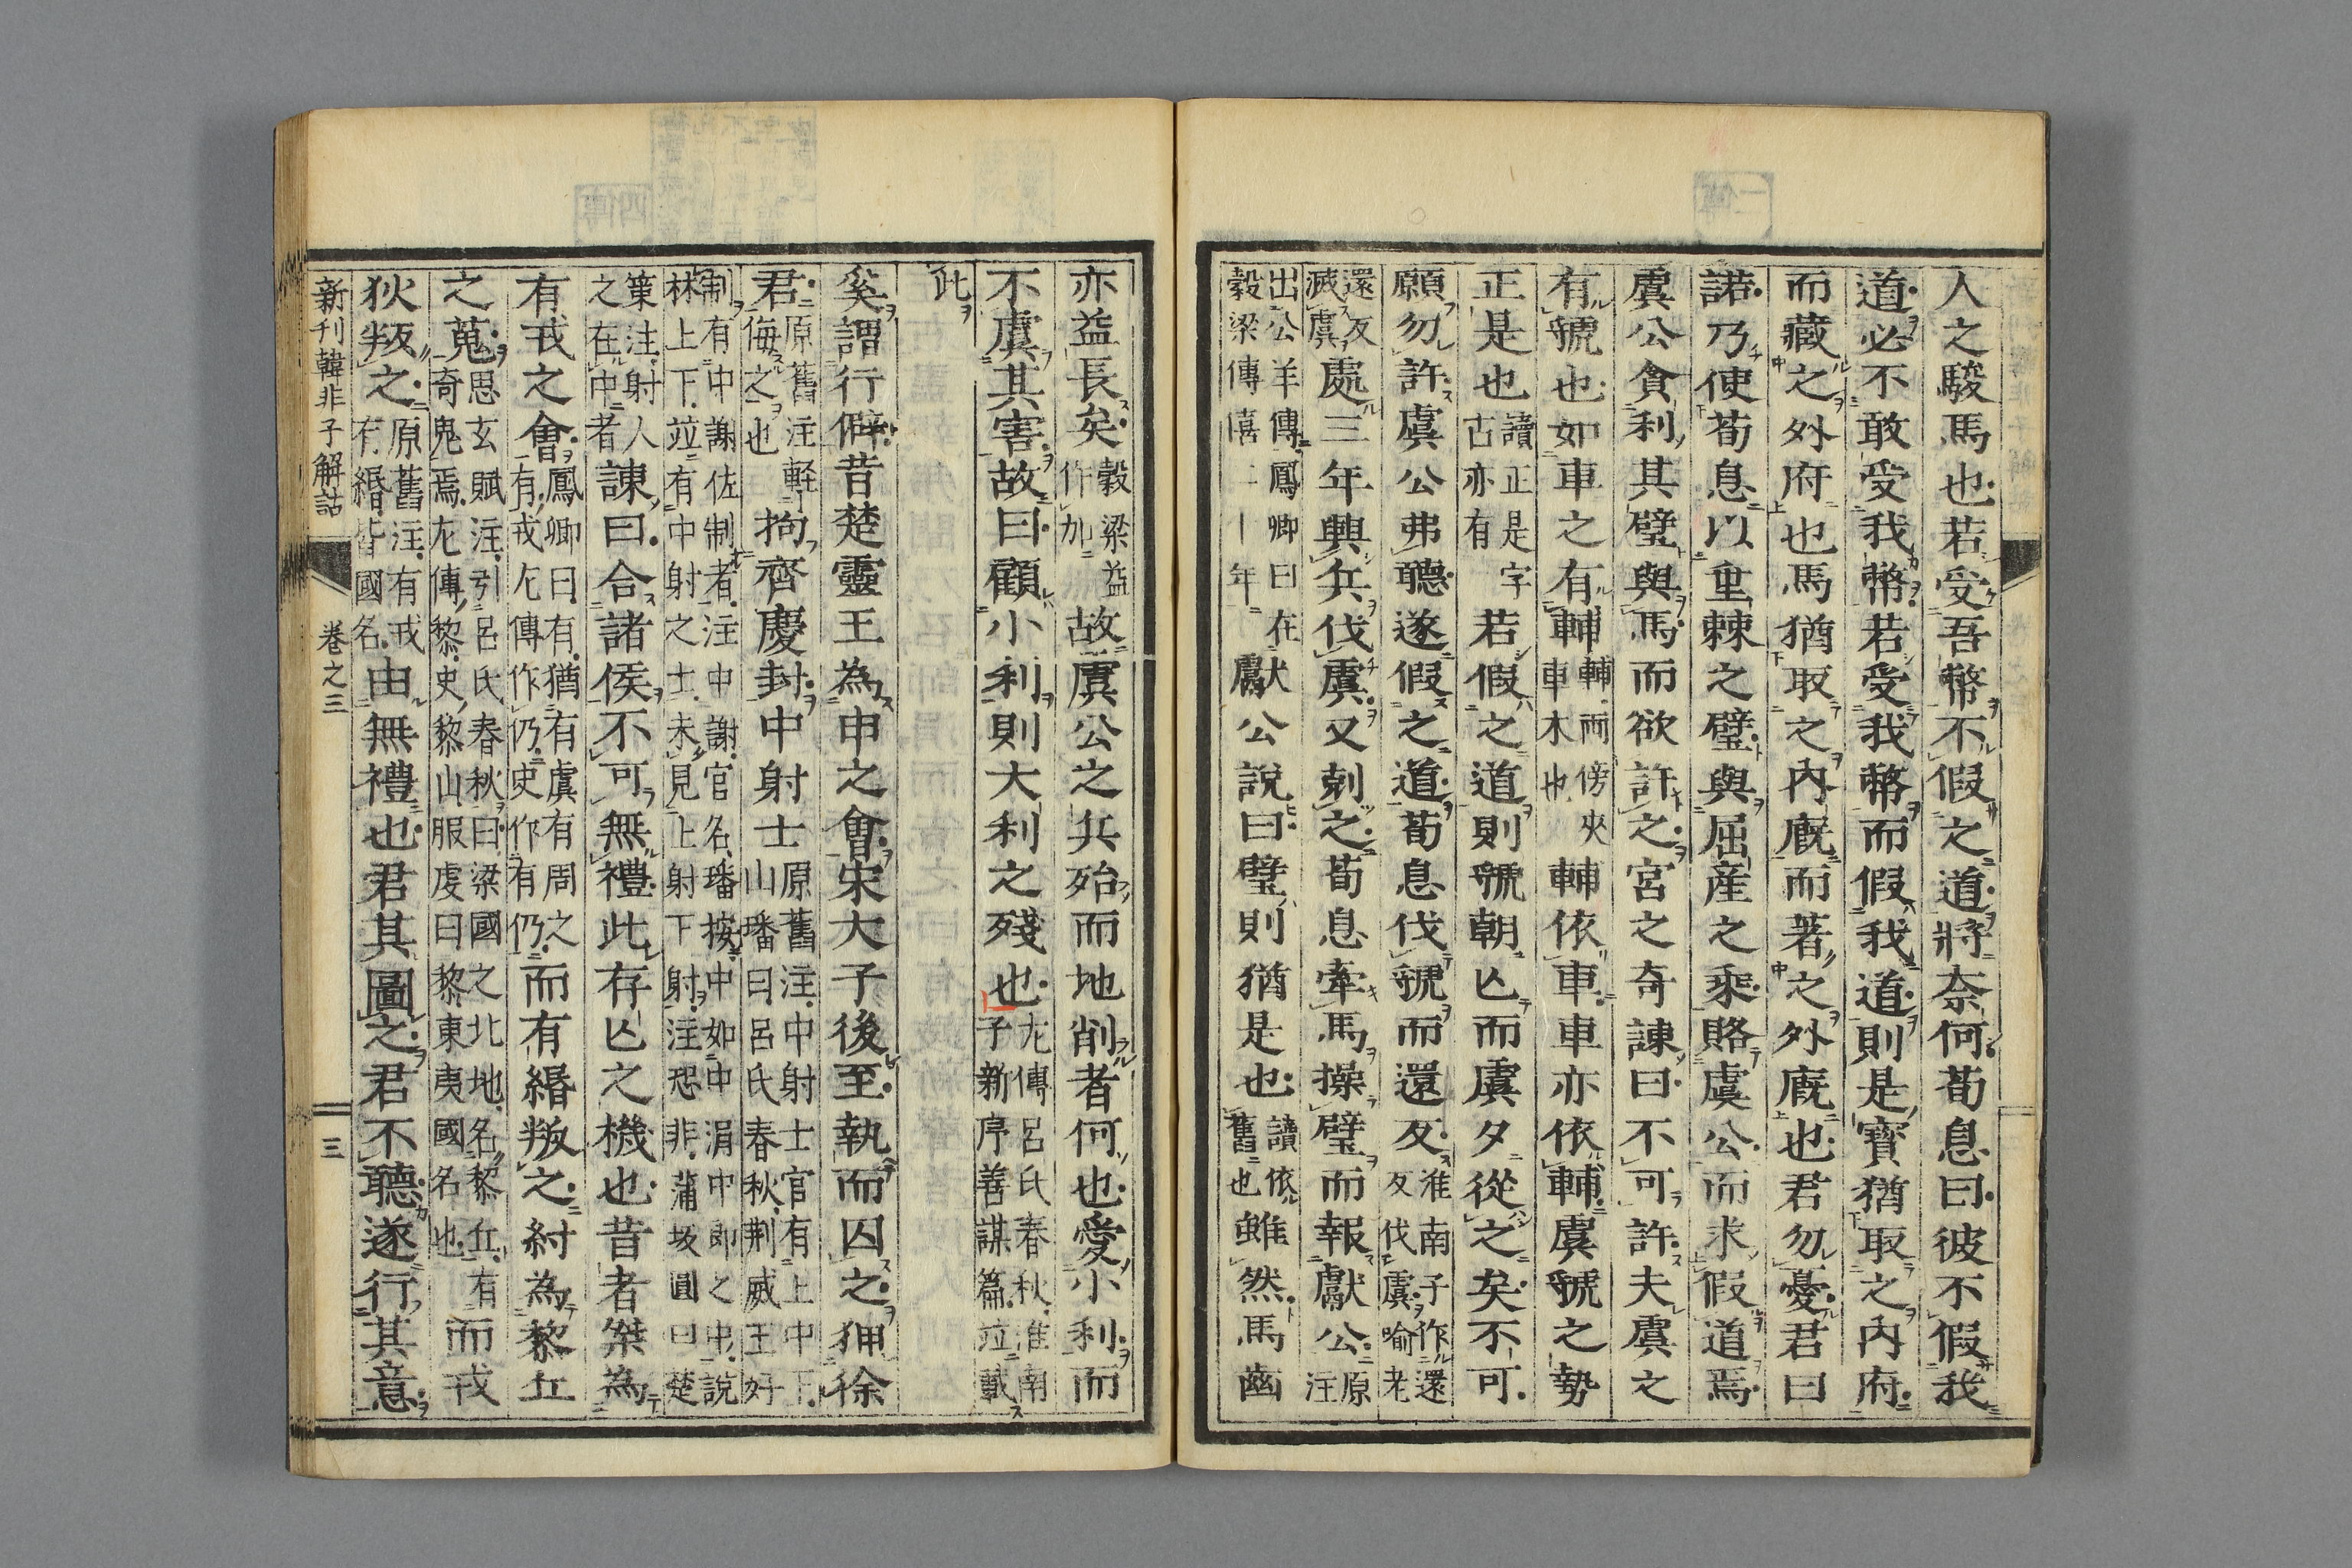 人之駿馬也若受吾幣不假之道將奈何荀息曰彼不假我
道必不敢受我幣若受我幣而假我道則是寶猶取之內府
而藏之外府也馬猶取之內廐而著之外廐也君勿憂君曰
諾乃使荀息以垂棘之璧與屈産之乘賂虞公而求假道焉
虞公貪利其璧與馬而欲許之宮之奇諫曰不可許夫虞之
有虢也如車之有輔輔兩傍夾車木也輔依車車亦依輔虞虢之勢
正是也讀正是字古亦有若假之道則虢朝亾而虞夕從之矣不可
願勿許虞公弗聽遂假之道荀息伐虢而還反淮南子作還反伐虞喻老
還反滅虞處三年興兵伐虞又剋之荀息牽馬操璧而報獻公原注
出公羊傳鳳卿曰在穀梁傳僖二十年獻公說曰璧則猶是也讀依舊也雖然馬齒
亦益長矣穀梁益作加故虞公之兵殆而地削者何也愛小利而
不虞其害故曰顧小利則大利之殘也左傳呂氏春秋淮南子新序善謀篇竝載
此
奚謂行僻昔楚靈王為申之會宋大子後至執而囚之狎徐
君原舊注輕侮之也拘齊慶封中射士原舊注中射士官有上中下山璠曰呂氏春秋荆威王好
制有中謝佐制者注中謝官名璠按中如中涓中郎之中說林上下竝有中射之士未見上射下射注恐非蒲坂圓曰楚
策注射人之在中者諫曰合諸侯不可無禮此存亾之機也昔者桀為
有戎之會鳳卿曰有猶有虞有周之有有戎左傳作仍史作有仍而有緡叛之紂為黎丘
之蒐思玄賦注引呂氏春秋曰梁國之北地名黎丘有奇鬼焉左傳黎史黎山服虔曰黎東夷國名也而戎
狄叛之原舊注有戎有緡皆國名由無禮也君其圖之君不聽遂行其意
新刊韓非子解詁
卷之三
三